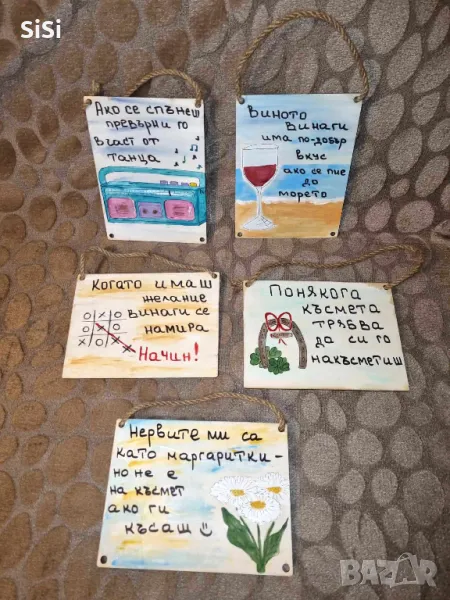 SiSi
Ако се спънеш
превърни го
в част от
танца
Виното
винаги
има по-добър
вкус
ако се пие
до
морето
Когато имаш
желание
винаги се
намира
Начин!
Понякога
късмета
трябва
да си го
накъсметиш
Нервите ми са
като маргаритки-
но не е
на късмет
ако ги
късаш
BAZAR